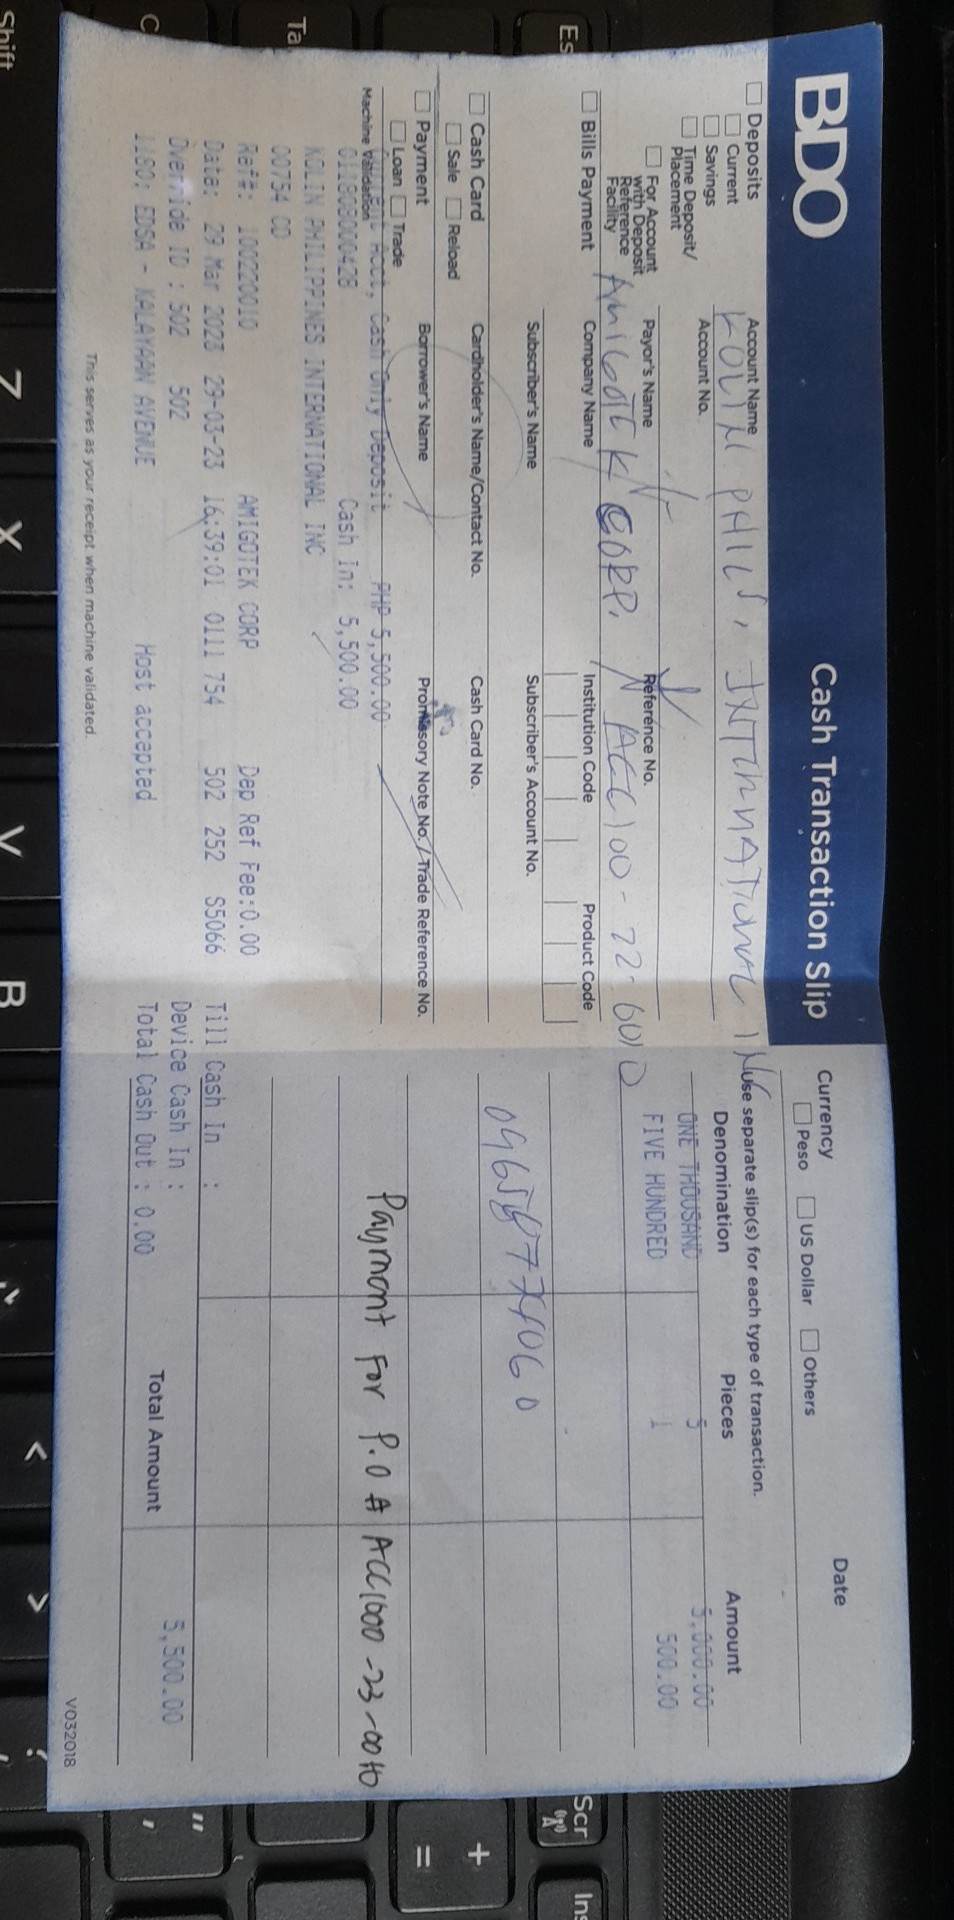 BDO
Cash Transaction Slip
Deposits
Current
Savings
Time Deposit/
Placement
For Account
with Deposit
Reference
Facility
Account Name
KOLIN PHILS, INTERNATIONAL INC
Account No.
Payor's Name
Reference No.
AMIGOTEK CORP.
Bills Payment
Company Name
Institution Code
Product Code
Subscriber's Name
Subscriber's Account No.
Cash Card
Sale
Reload
Cardholder's Name/Contact No.
Cash Card No.
Payment
Loan
Trade
Borrower's Name
Promissory Note No. / Trade Reference No.
Machine Validation
Acct, Cash Only Deposit PHP 5,500.00
011808000428 Cash In: 5,500.00
KOLIN PHILIPPINES INTERNATIONAL INC
00754 CD
Ref#: 10020010 AMIGOTEK CORP Dep Ref Fee:0.00
Date: 29 Mar 2023 29-03-23 16:39:01 0111 754 502 252 S5066
Override ID : 502 502
1180: EDSA - KALAYAAN AVENUE Host accepted
This serves as your receipt when machine validated.
Currency
Date
Peso
US Dollar
Others
Use separate slip(s) for each type of transaction.
Denomination Pieces Amount
ONE THOUSAND 5 5,000.00
FIVE HUNDRED 1 500.00
Payment For P.O #
Till Cash In :
Device Cash In :
Total Cash Out : 0.00
Total Amount 5,500.00
V032018
Shift
Z
X
C
V
B
<
>
?
Es
Ta
Scr
Ins
+
=
"
'